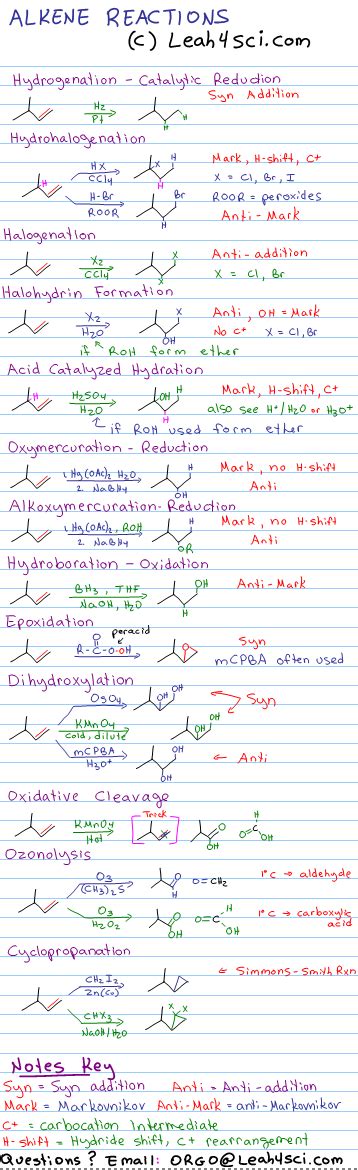 ALKENE REACTIONS
(C) Leah4Sci.com
Hydrogenation - Catalytic Reduction
H₂
Pt
H
H
Syn Addition
Hydrohalogenation
H
HX
CCl₄
X
H
H
Mark, H-shift, C+
X = Cl, Br, I
H-Br
ROOR
Br
H
ROOR = peroxides
Anti-Mark
Halogenation
X₂
CCl₄
X
X
Anti-addition
X = Cl, Br
Halohydrin Formation
X₂
H₂O
X
OH
Anti, OH = Mark
No C+ X = Cl, Br
if ROH form ether
Acid Catalyzed Hydration
H
H₂SO₄
H₂O
OH
H
H
Mark, H-shift, C+
also see H⁺/H₂O or H₃O⁺
if ROH used form ether
Oxymercuration - Reduction
1. Hg(OAc)₂ H₂O
2. NaBH₄
H
OH
Mark, no H-shift
Anti
Alkoxymercuration-Reduction
1. Hg(OAc)₂, ROH
2. NaBH₄
H
OR
Mark, no H-shift
Anti
Hydroboration - Oxidation
BH₃, THF
NaOH, H₂O
OH
H
Anti-Mark
Epoxidation
peracid
O
R-C-O-OH
O
Syn
mCPBA often used
Dihydroxylation
OsO₄
OH
OH
Syn
KMnO₄
cold, dilute
OH
OH
mCPBA
H₃O⁺
OH
OH
← Anti
Oxidative Cleavage
KMnO₄
Hot
Trick
O
OH
O=C
H
OH
Ozonolysis
O₃
(CH₃)₂S
O
H
O=CH₂
1°C → aldehyde
O₃
H₂O₂
O
OH
O=C
H
OH
1°C → carboxylic
acid
Cyclopropanation
CH₂I₂
Zn(Cu)
← Simmons-Smith Rxn
CHX₃
NaOH/H₂O
X X
Notes Key
Syn = Syn addition Anti = Anti-addition
Mark = Markovnikov Anti-Mark = anti-Markovnikov
C+ = carbocation Intermediate
H-shift = Hydride shift, C+ rearrangement
Questions? Email: ORGO@Leah4sci.com